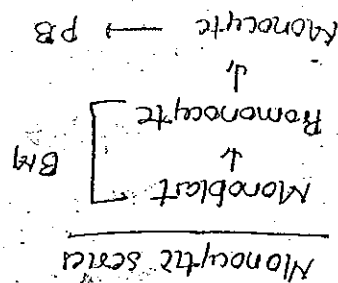 Monocytic series
Monoblast
↓
Promonocyte
BM
↓
Monocyte → PB